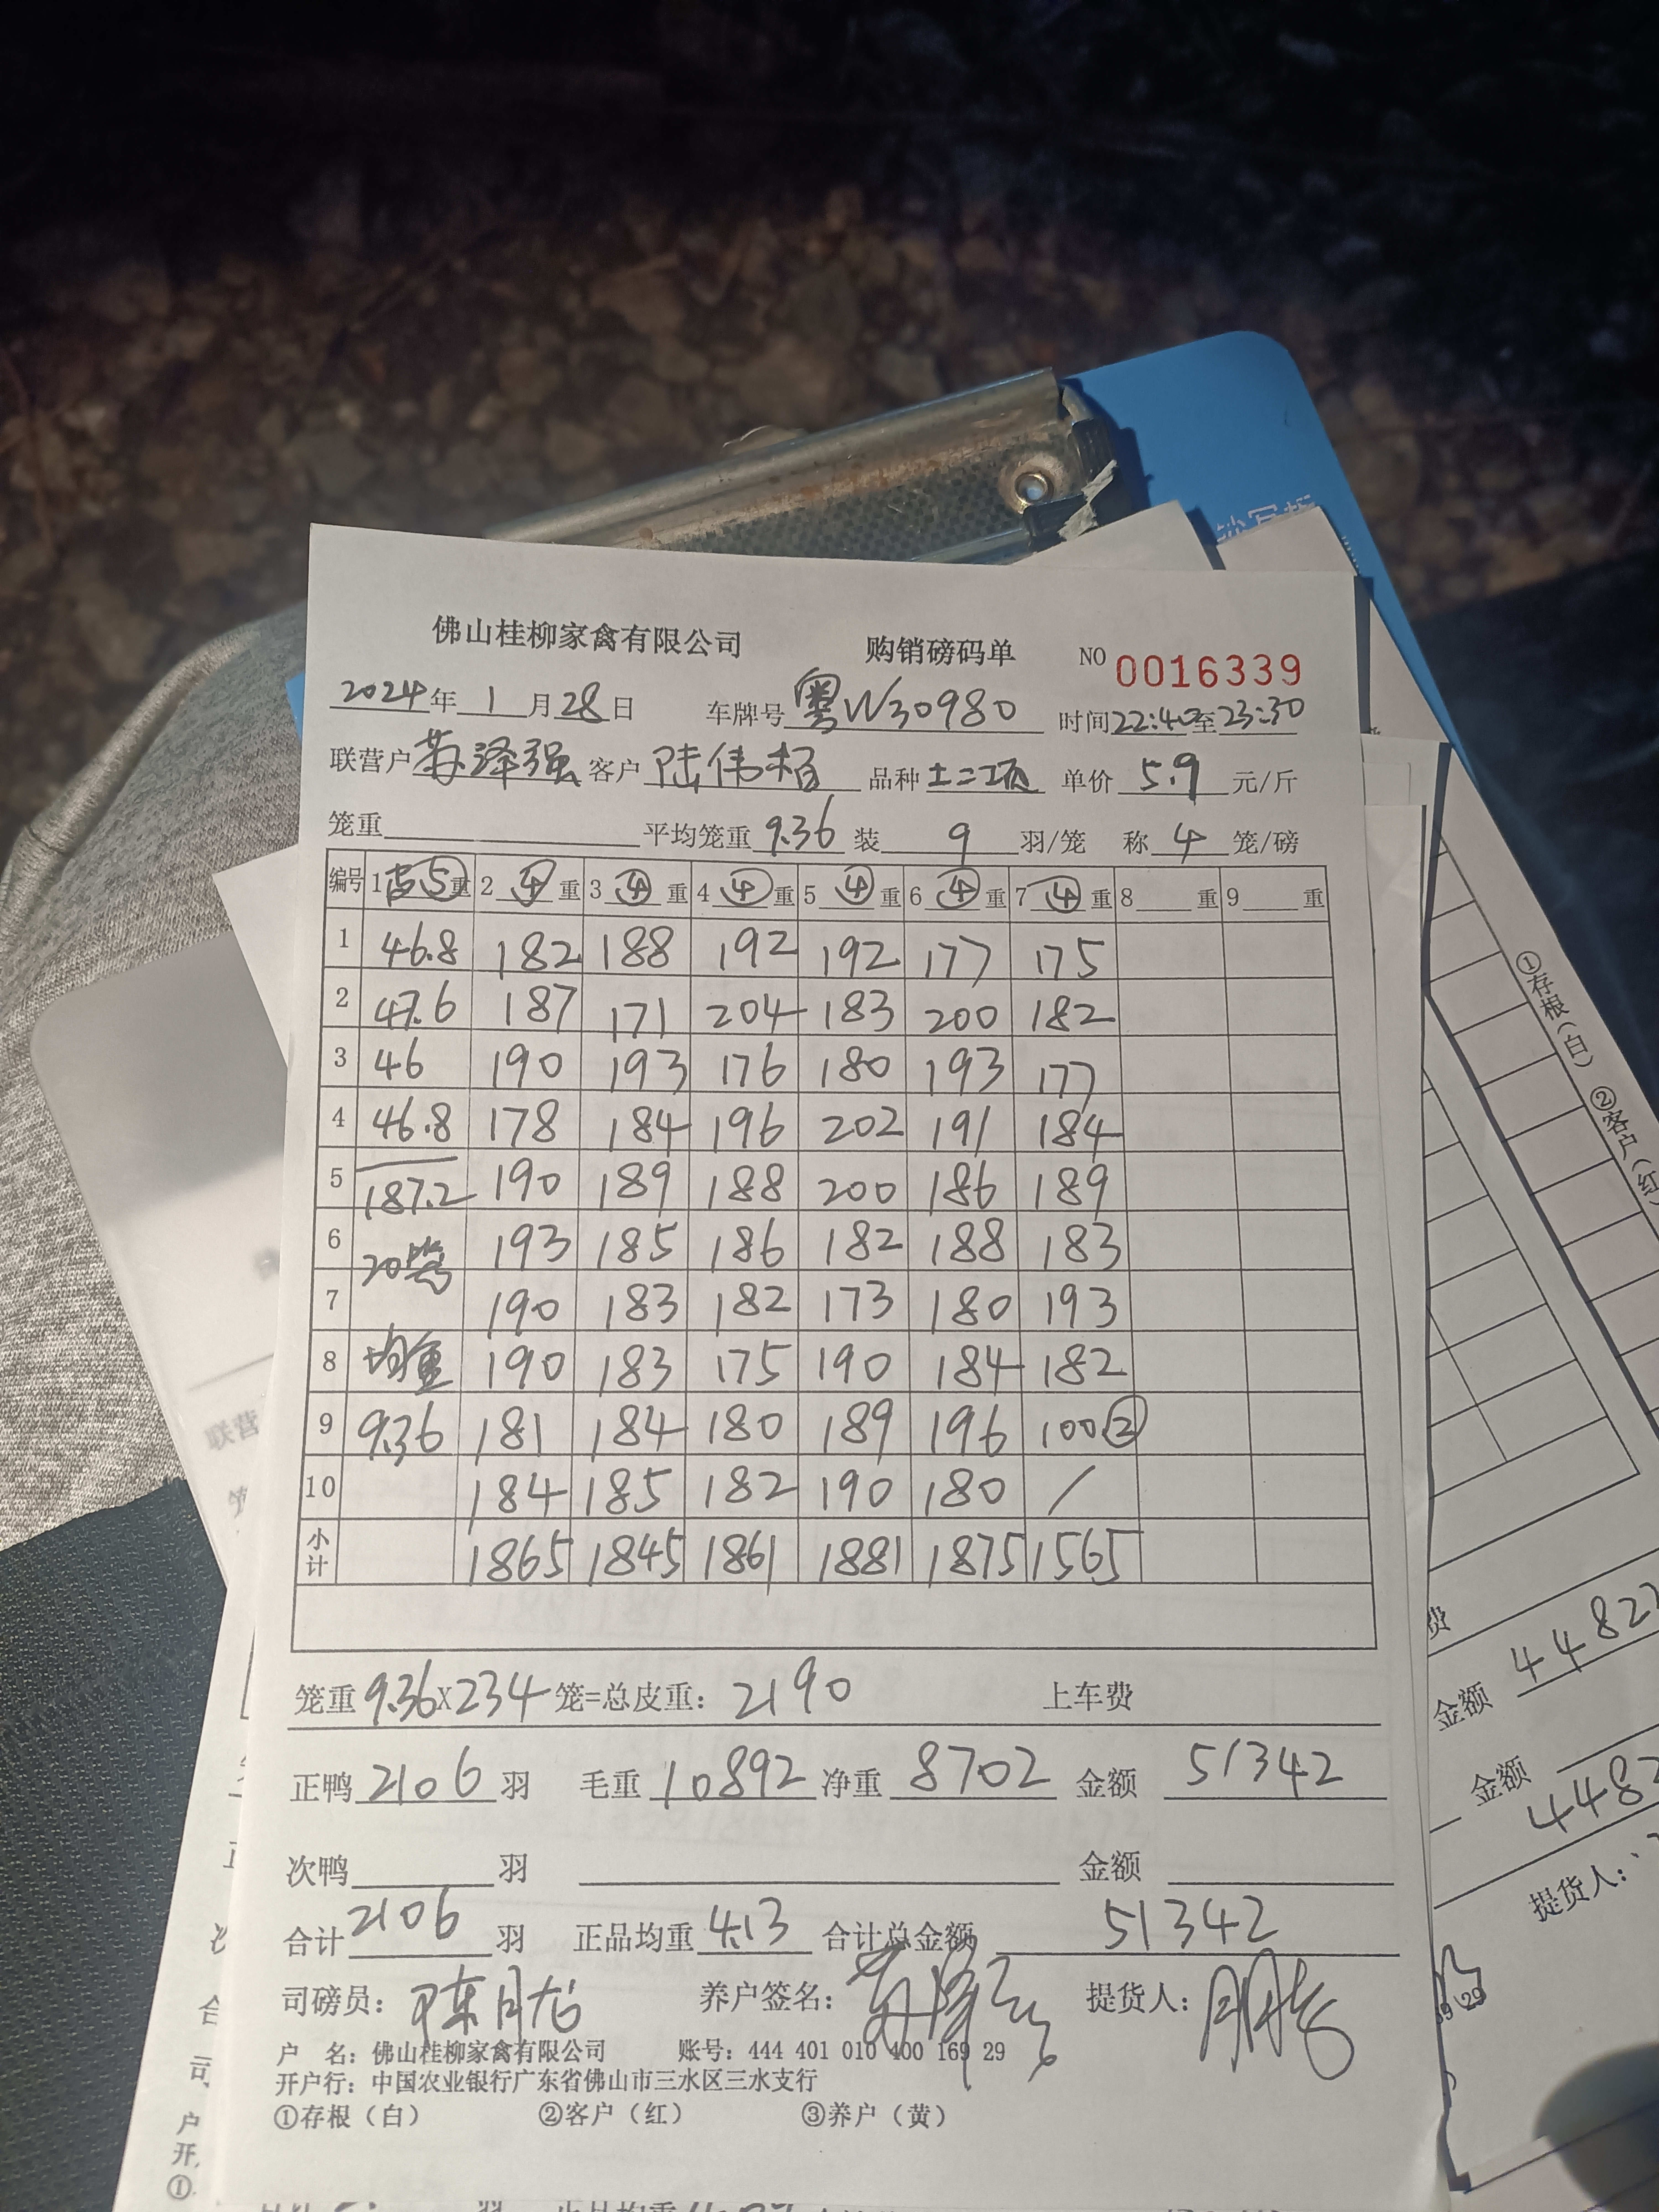 佛山桂柳家禽有限公司 购销磅码单 NO 0016339
2024年1月28日 车牌号粤W30980 时间22:40至23:30
联营户苏泽强 客户陆伟柏 品种土二项 单价5.9元/斤
笼重 平均笼重9.36 装9羽/笼 称4笼/磅
编号 1皮⑤重 2④重 3④重 4④重 5④重 6④重 7④重 8重 9重
1 46.8 182 188 192 192 177 175
2 47.6 187 171 204 183 200 182
3 46 190 193 176 180 193 177
4 46.8 178 184 196 202 191 184
5 187.2 190 189 188 200 186 189
6 20笼 193 185 186 182 188 183
7 190 183 182 173 180 193
8 均重 190 183 175 190 184 182
9 9.36 181 184 180 189 196 100②
10 184 185 182 190 180 /
小计 1865 1845 1861 1881 1875 1565
笼重9.36X234笼=总皮重：2190 上车费
正鸭2106羽 毛重10892 净重8702 金额51342
次鸭 羽 金额
合计2106羽 正品均重4.13 合计总金额51342
司磅员：陈月龙 养户签名： 提货人：
户 名：佛山桂柳家禽有限公司 账号：444 401 010 400 169 29
开户行：中国农业银行广东省佛山市三水区三水支行
①存根（白） ②客户（红） ③养户（黄）
①存根（白） ②客户（红）
金额
金额
提货人：
联营